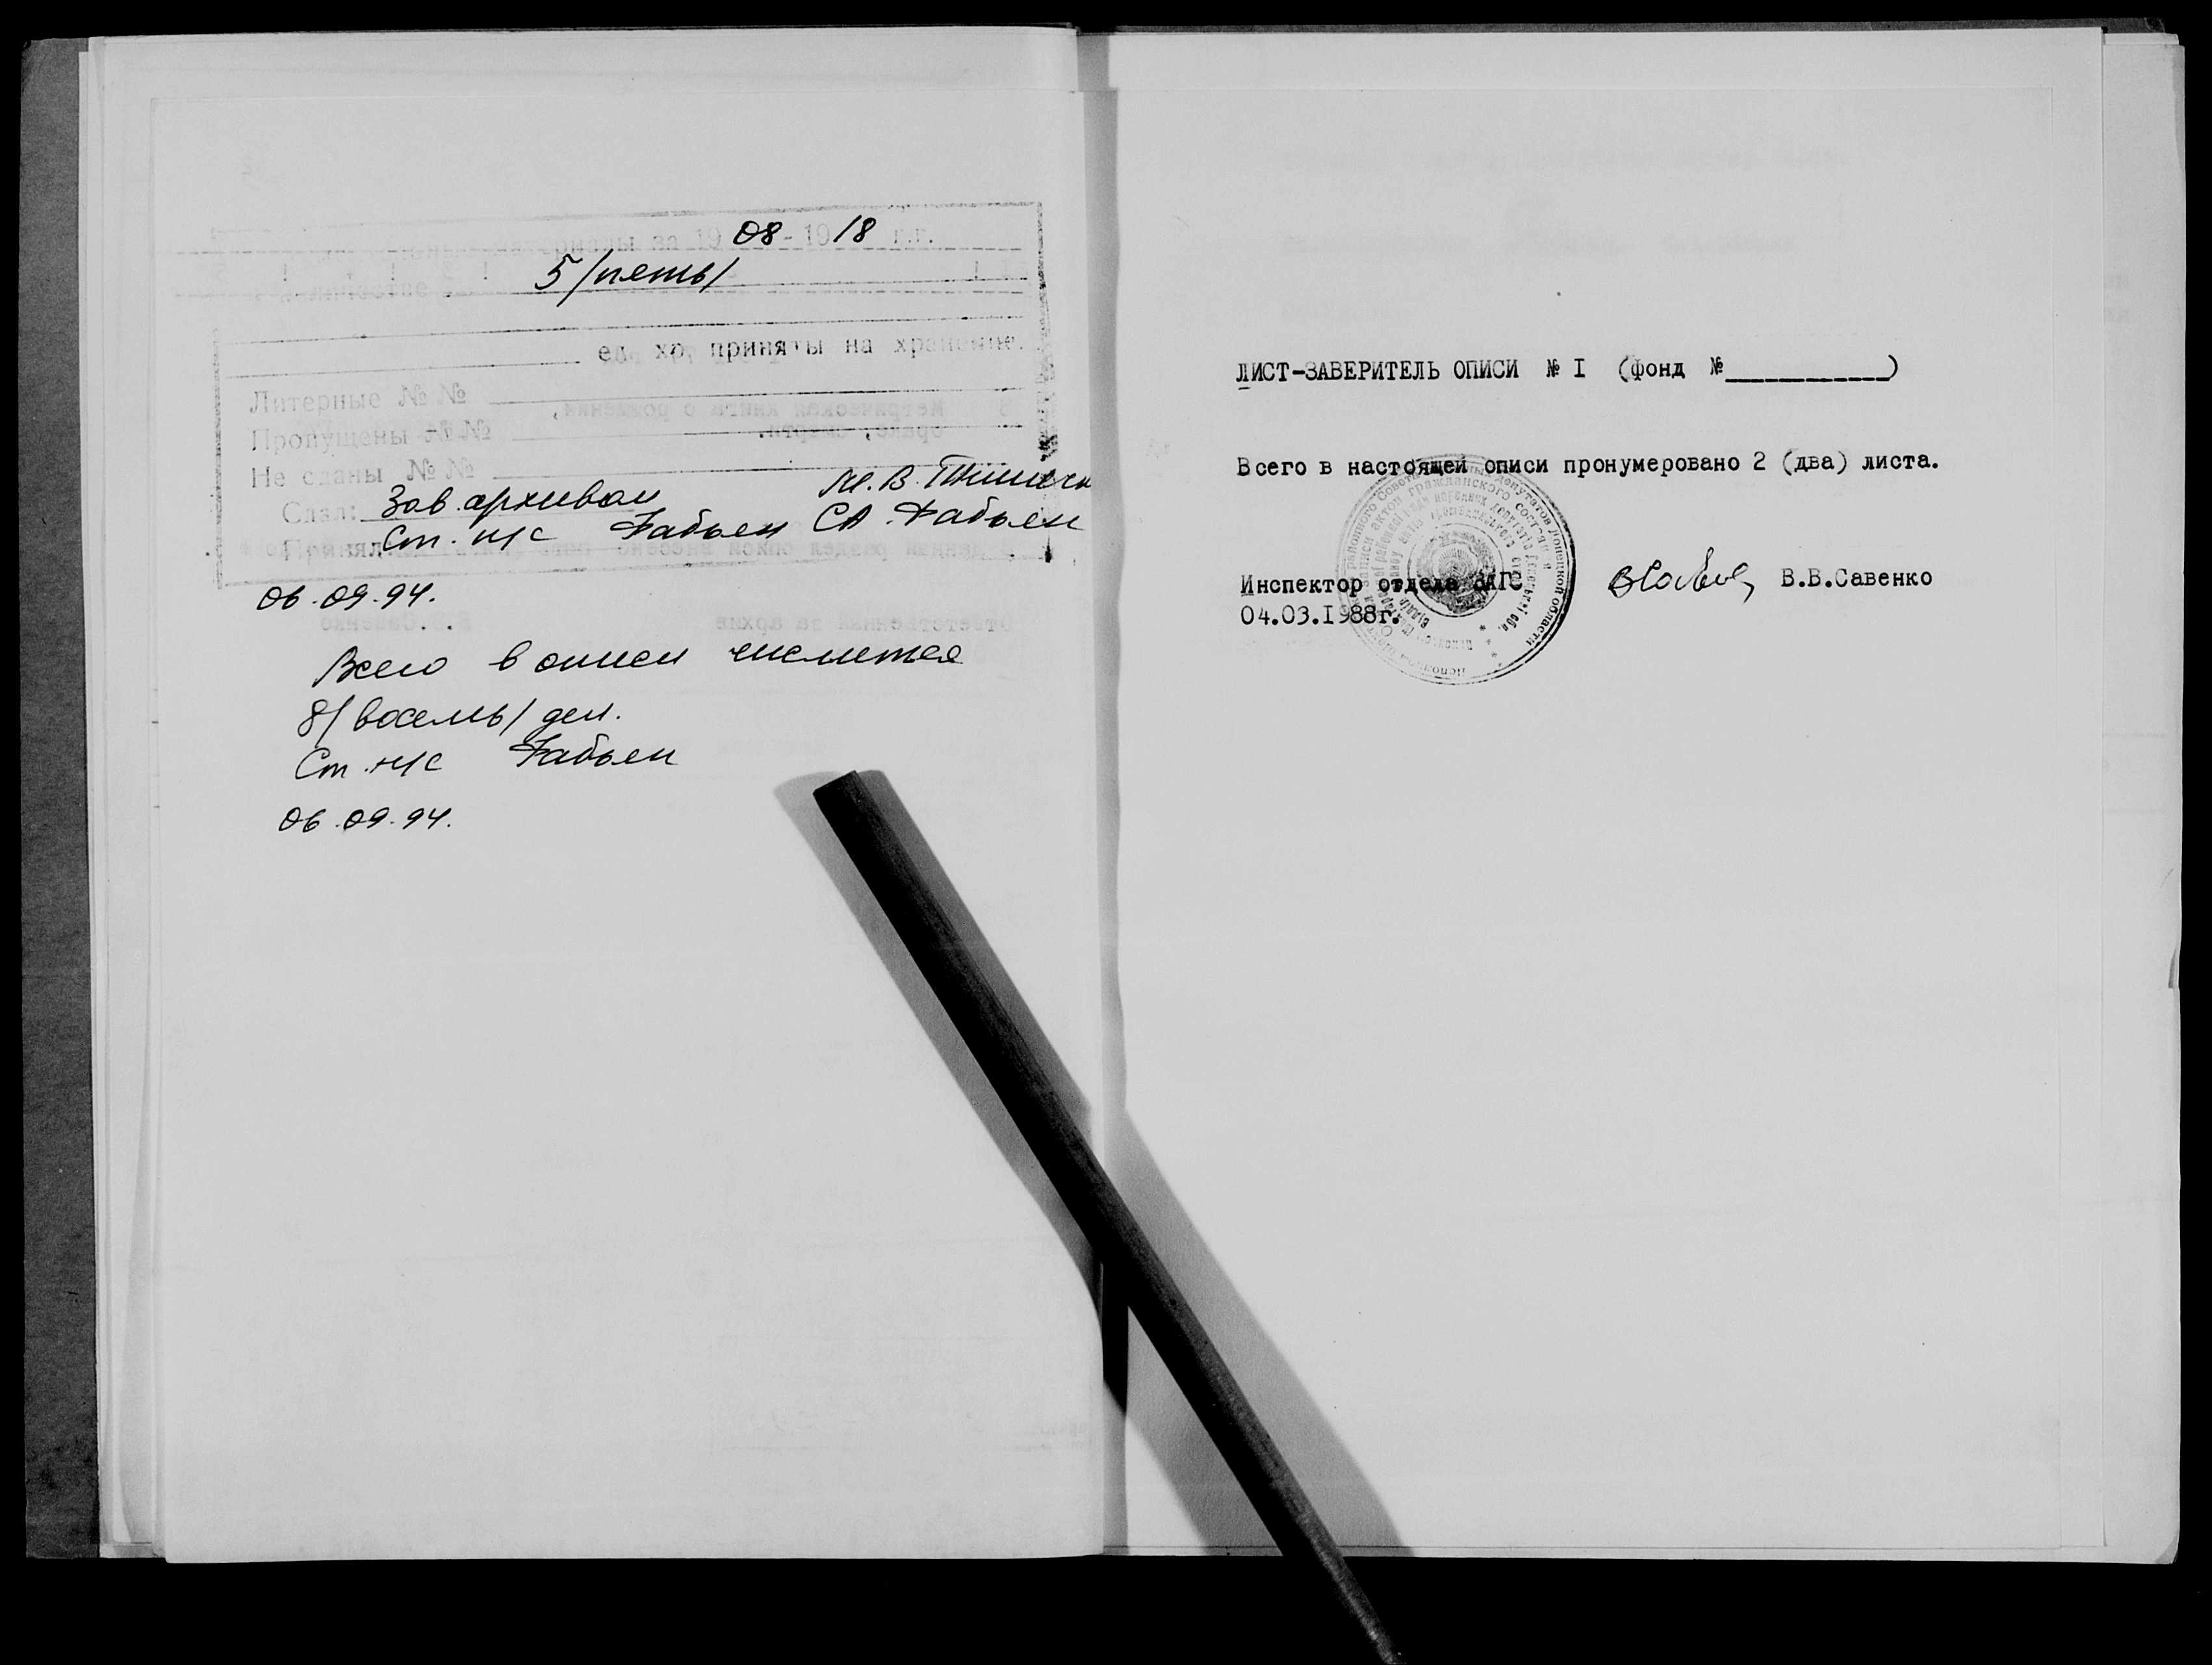 материалы за 1908-1918 г.г.
количестве 5/пять/
ед. хр. приняты на хранение.
Литерные №№
Пропущены №№
Не сданы №№
Сдал: Зав. архивом М.В.
Принял Ст. н/с С.А.
06.09.94.
Всего в описи числится
8/восемь/ дел.
Ст. н/с
06.09.94.
ЛИСТ-ЗАВЕРИТЕЛЬ ОПИСИ № I (фонд №____________)
Всего в настоящей описи пронумеровано 2 (два) листа.
Инспектор отдела ЗАГС В.В.Савенко
04.03.1988г.